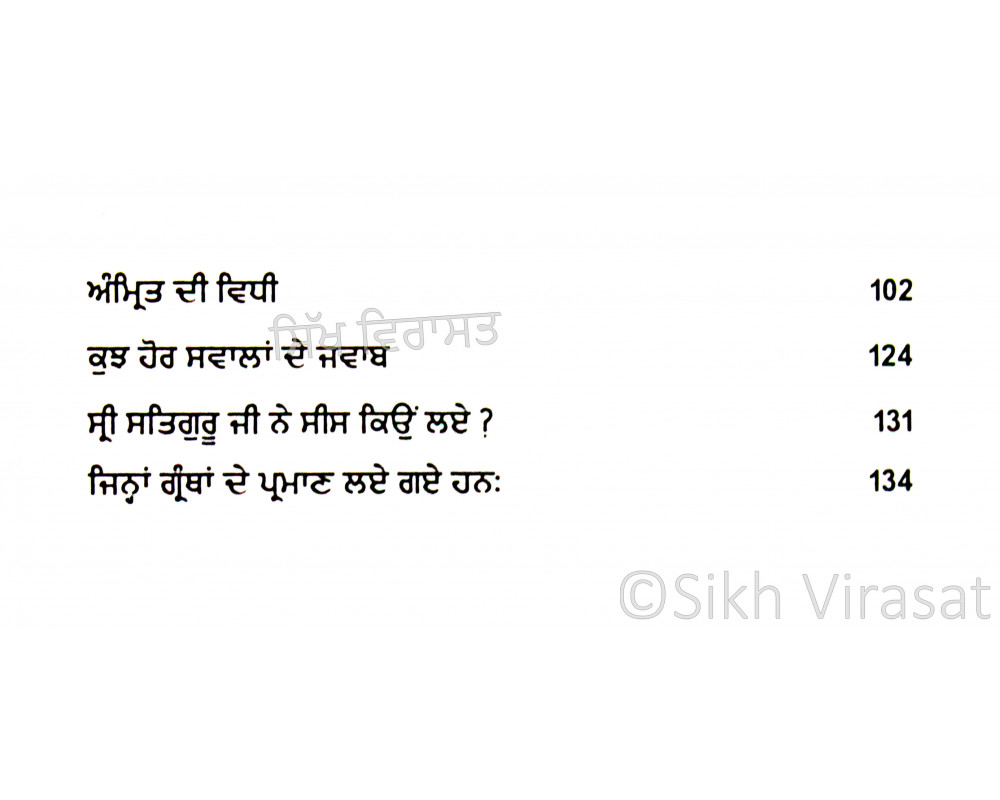 ਅੰਮ੍ਰਿਤ ਦੀ ਵਿਧੀ 102
ਸਿੱਖ ਵਿਰਾਸਤ
ਕੁਝ ਹੋਰ ਸਵਾਲਾਂ ਦੇ ਜਵਾਬ 124
ਸ੍ਰੀ ਸਤਿਗੁਰੂ ਜੀ ਨੇ ਸੀਸ ਕਿਉਂ ਲਏ ? 131
ਜਿਨ੍ਹਾਂ ਗ੍ਰੰਥਾਂ ਦੇ ਪ੍ਰਮਾਣ ਲਏ ਗਏ ਹਨਃ 134
©Sikh Virasat